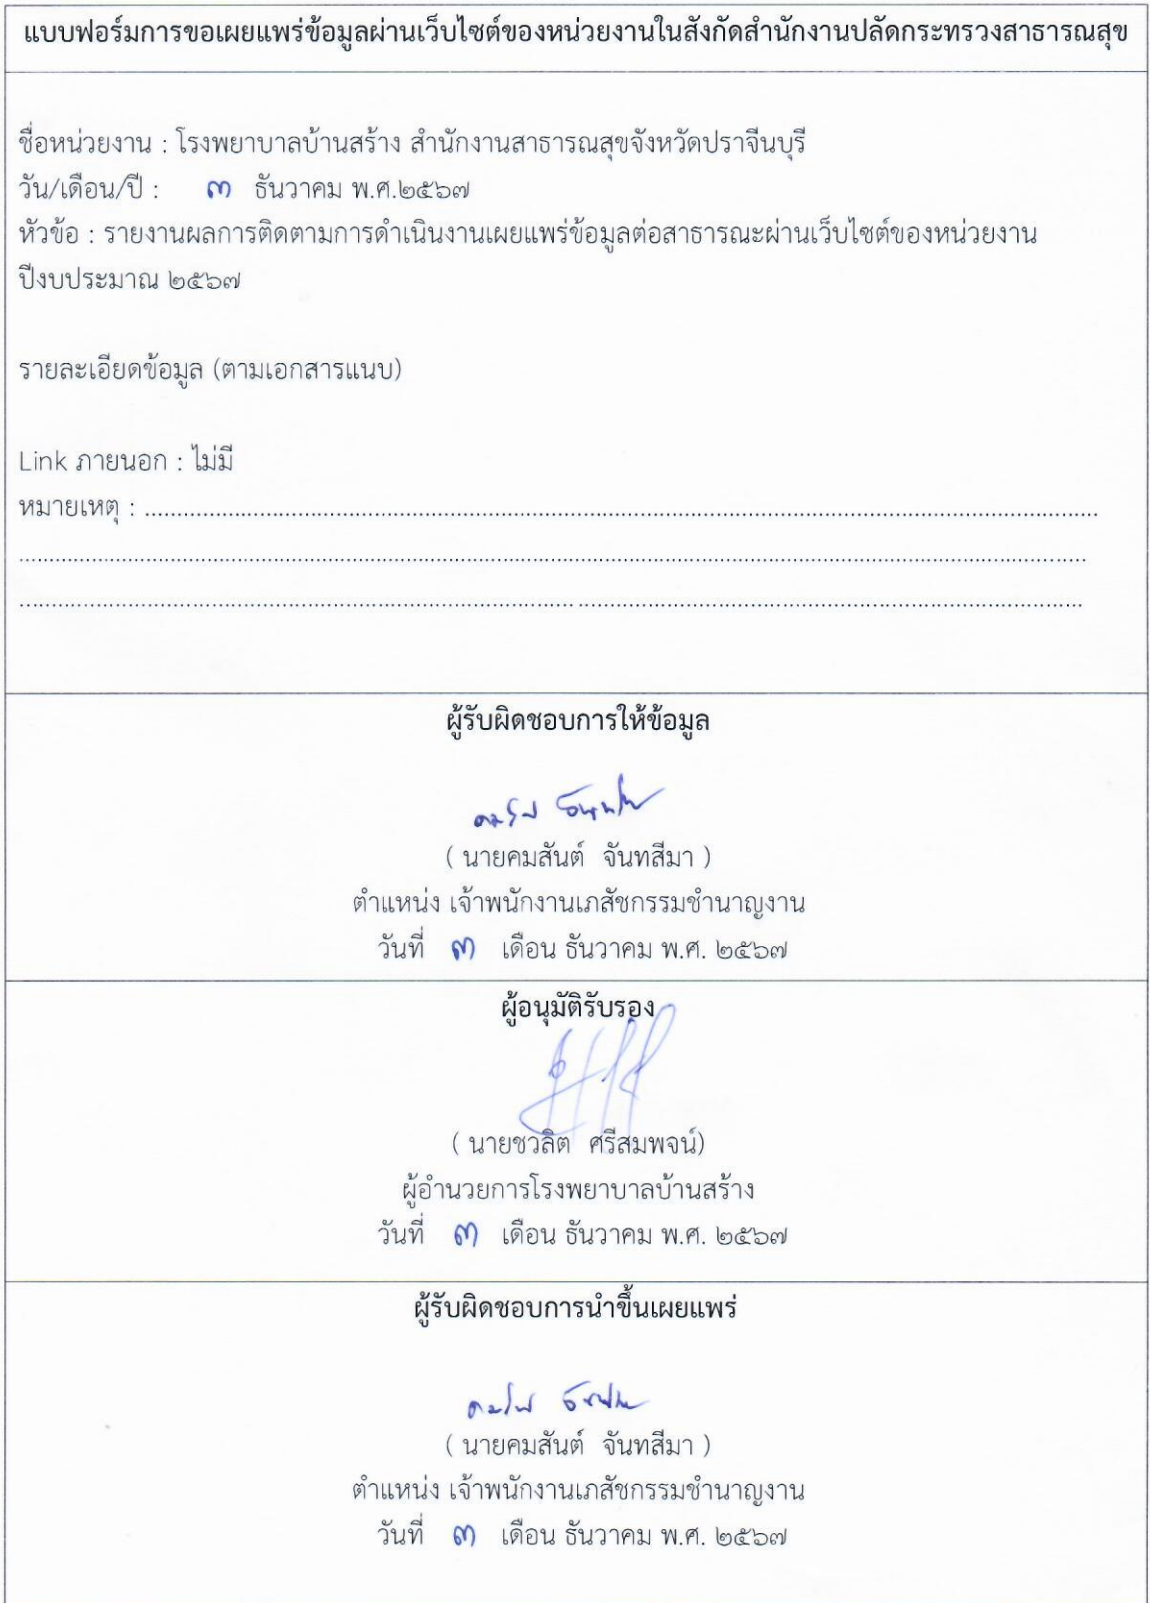 แบบฟอร์มการขอเผยแพร่ข้อมูลผ่านเว็บไซต์ของหน่วยงานในสังกัดสำนักงานปลัดกระทรวงสาธารณสุข
ชื่อหน่วยงาน : โรงพยาบาลบ้านสร้าง สำนักงานสาธารณสุขจังหวัดปราจีนบุรี
วัน/เดือน/ปี : ๓ ธันวาคม พ.ศ.๒๕๖๗
หัวข้อ : รายงานผลการติดตามการดำเนินงานเผยแพร่ข้อมูลต่อสาธารณะผ่านเว็บไซต์ของหน่วยงาน
ปีงบประมาณ ๒๕๖๗
รายละเอียดข้อมูล (ตามเอกสารแนบ)
Link ภายนอก : ไม่มี
หมายเหตุ : ........................................................................................................................................................
..........................................................................................................................................................................
..........................................................................................................................................................................
ผู้รับผิดชอบการให้ข้อมูล
( นายคมสันต์ จันทสีมา )
ตำแหน่ง เจ้าพนักงานเภสัชกรรมชำนาญงาน
วันที่ ๓ เดือน ธันวาคม พ.ศ. ๒๕๖๗
ผู้อนุมัติรับรอง
( นายชวลิต ศรีสมพจน์)
ผู้อำนวยการโรงพยาบาลบ้านสร้าง
วันที่ ๓ เดือน ธันวาคม พ.ศ. ๒๕๖๗
ผู้รับผิดชอบการนำขึ้นเผยแพร่
( นายคมสันต์ จันทสีมา )
ตำแหน่ง เจ้าพนักงานเภสัชกรรมชำนาญงาน
วันที่ ๓ เดือน ธันวาคม พ.ศ. ๒๕๖๗